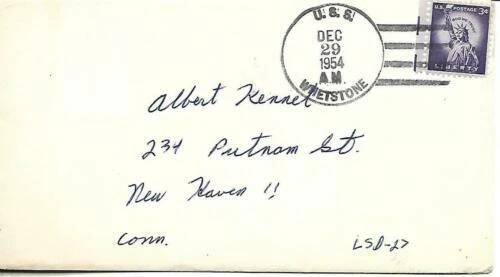 U.S.S.
DEC
29
1954
A.M.
WHETSTONE
U.S. POSTAGE 3¢
IN GOD WE TRUST
LIBERTY
Albert Kennel
234 Putnam St.
New Haven !!
Conn.
LSD-27